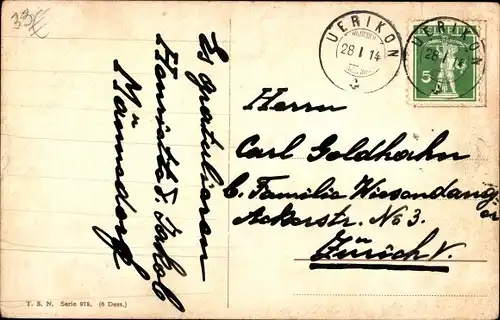 33
Es gratulieren
Henriette & Jakob
Männedorf
UERIKON
28 I 14
UERIKON
28 I 14
5
Herrn
Carl Goldhahn
b. Familie Wiesendanger
Ackerstr. No 3.
Zürich V.
T. S. N. Serie 978. (6 Dess.)